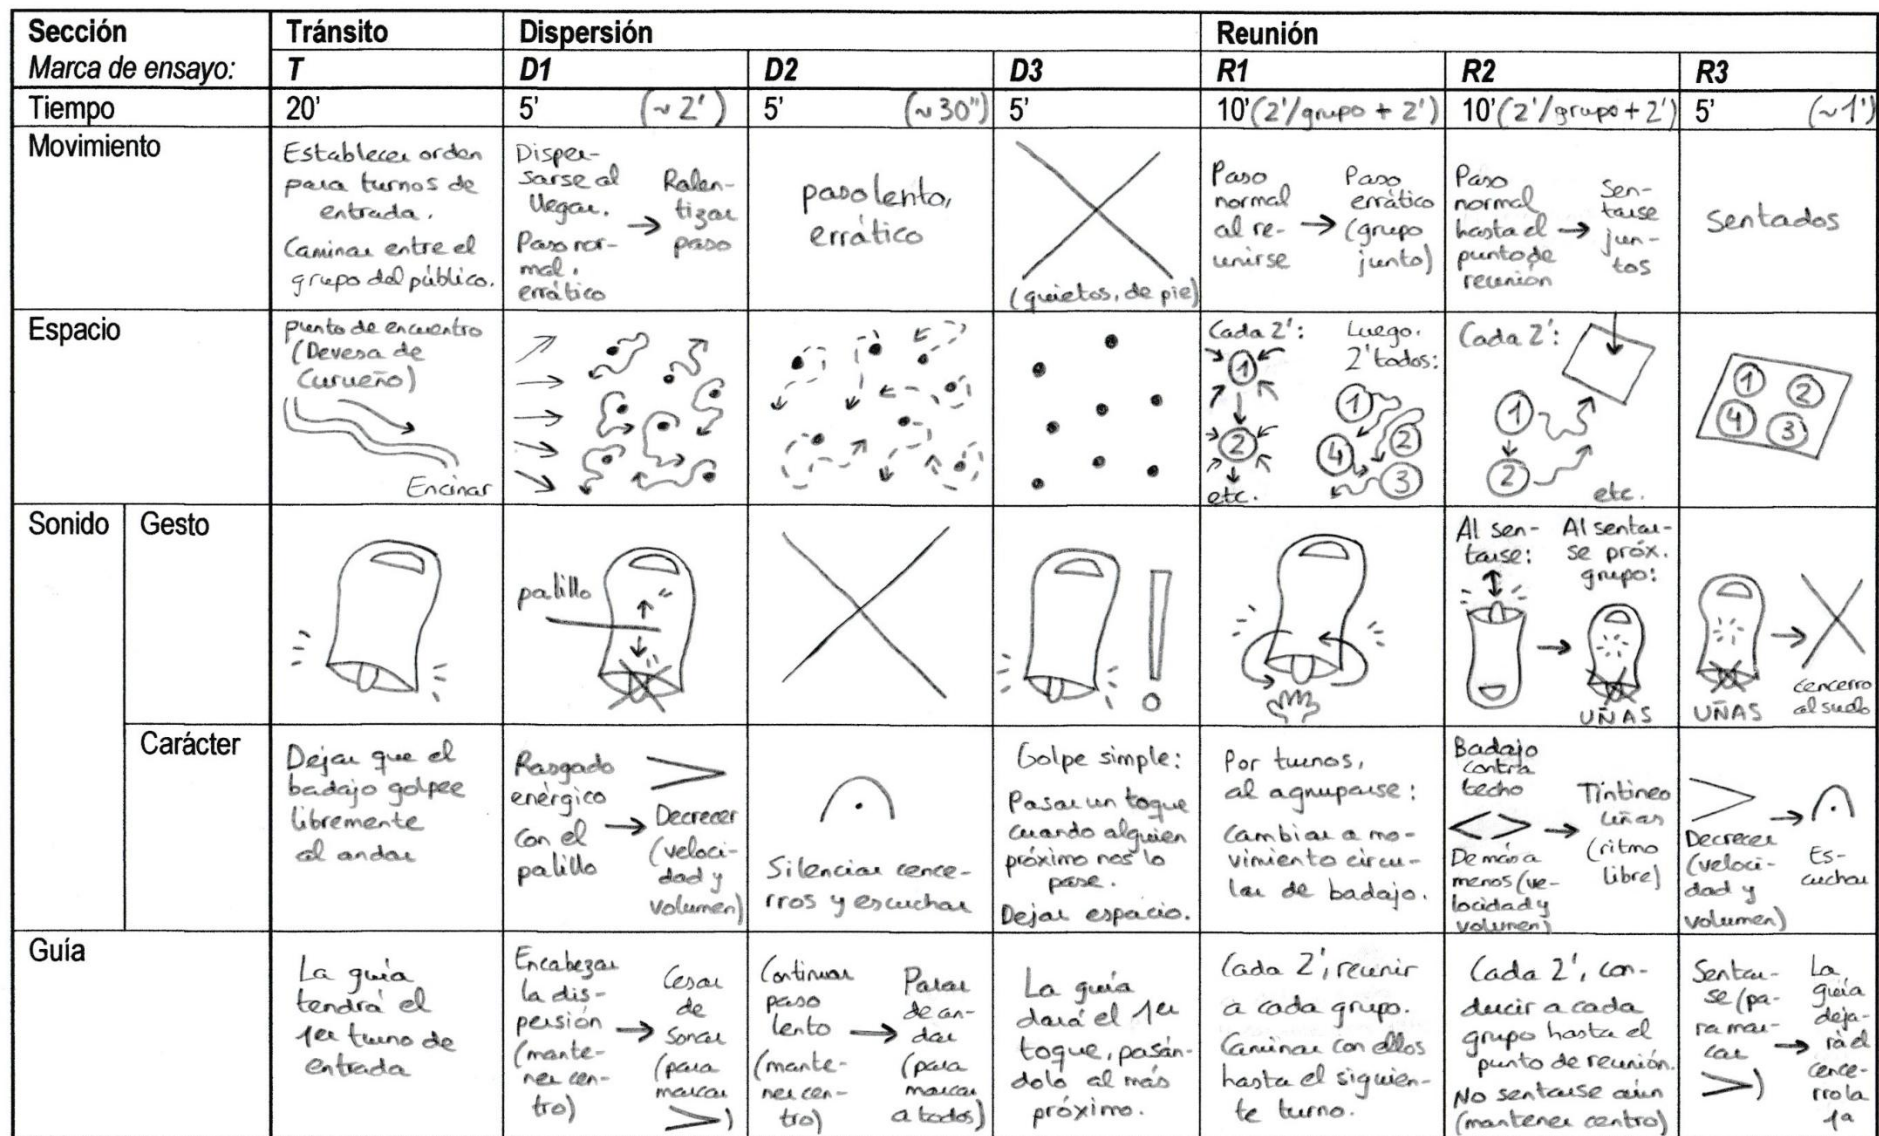 Sección
Tránsito
Dispersión
Reunión
Marca de ensayo:
T
D1
D2
D3
R1
R2
R3
Tiempo
20'
5' (~2')
5' (~30")
5'
10' (2'/grupo + 2')
10' (2'/grupo + 2')
5' (~1')
Movimiento
Establecer orden
para turnos de
entrada.
Caminar entre el
grupo del público.
Disper-
sarse al
llegar.
Paso nor-
mal,
errático
→
Ralen-
tizar
paso
paso lento,
errático
(quietos, de pie)
Paso
normal
al re-
unirse
→
Paso
errático
(grupo
junto)
Paso
normal
hasta el
punto de
reunión
→
Sen-
tarse
jun-
tos
Sentados
Espacio
punto de encuentro
(Devesa de
Curueño)
Encinar
Cada 2':
1
2
etc.
Luego,
2' todos:
1
2
4
3
Cada 2':
1
2
etc.
1
2
4
3
Sonido
Gesto
palillo
!
Al sen-
tarse:
→
Al sentar-
se próx.
grupo:
UÑAS
UÑAS
→
cencerro
al suelo
Carácter
Dejar que el
badajo golpee
libremente
al andar
Rasgado
enérgico
con el
palillo
→
>
Decrecer
(veloci-
dad y
volumen)
Silenciar cence-
rros y escuchar
Golpe simple:
Pasar un toque
cuando alguien
próximo nos lo
pase.
Dejar espacio.
Por turnos,
al agruparse:
Cambiar a mo-
vimiento circu-
lar de badajo.
Badajo
contra
techo
< >
De más a
menos (ve-
locidad y
volumen)
→
Tintineo
uñas
(ritmo
libre)
>
Decrecer
(veloci-
dad y
volumen)
→
Es-
cuchar
Guía
La guía
tendrá el
1er turno de
entrada
Encabezar
la dis-
persión
(mante-
ner cen-
tro)
→
Cesar
de
sonar
(para
marcar
>)
Continuar
paso
lento
(mante-
ner cen-
tro)
→
Parar
de an-
dar
(para
marcar
a todos)
La guía
dará el 1er
toque, pasán-
dolo al más
próximo.
Cada 2', reunir
a cada grupo.
Caminar con ellos
hasta el siguien-
te turno.
Cada 2', con-
ducir a cada
grupo hasta el
punto de reunión.
No sentarse aún
(mantener centro)
Sentar-
se (pa-
ra mar-
car
>)
→
La
guía
deja-
rá el
cence-
rro la
1ª